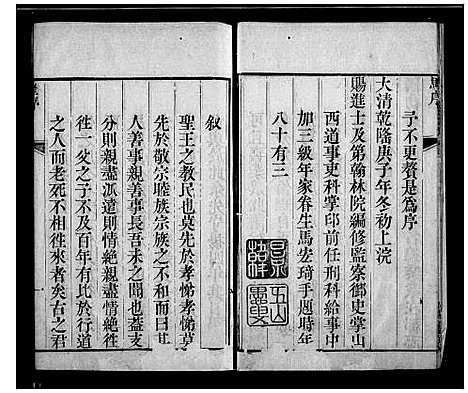 馬序
予不更贅是為序
大清乾隆庚子年冬初上浣
賜進士及第翰林院編修監察御史掌山
西道事吏科掌印前任刑科給事中
加三級年家眷生馬宏琦手題時年
八十有三
敘
聖王之教民也莫先於孝悌孝悌莫
先於敬宗睦族宗族之不和而曰其
人善事親善事長吾未之聞也蓋支
分則親盡派遠則情絶親盡情絶徃
徃一父之子不及百年有比於行道
之人而老死不相徃來者矣古之君
一